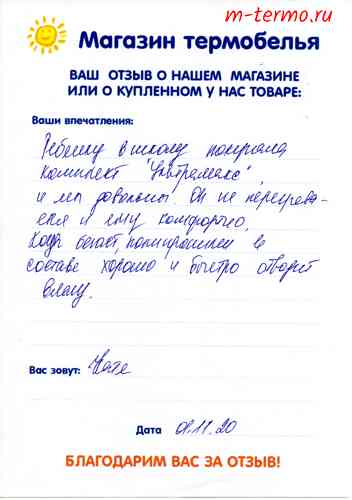 m-termo.ru
Магазин термобелья
ВАШ ОТЗЫВ О НАШЕМ МАГАЗИНЕ
ИЛИ О КУПЛЕННОМ У НАС ТОВАРЕ:
Ваши впечатления:
Ребенку в школу покупала
комплект "Ультрамакс"
и мы довольны. Он не перегрева-
ется и ему комфортно,
Когда бегает, полипропилен в
составе хорошо и быстро отводит
влагу.
Вас зовут: Катя
Дата 01.11.20
БЛАГОДАРИМ ВАС ЗА ОТЗЫВ!